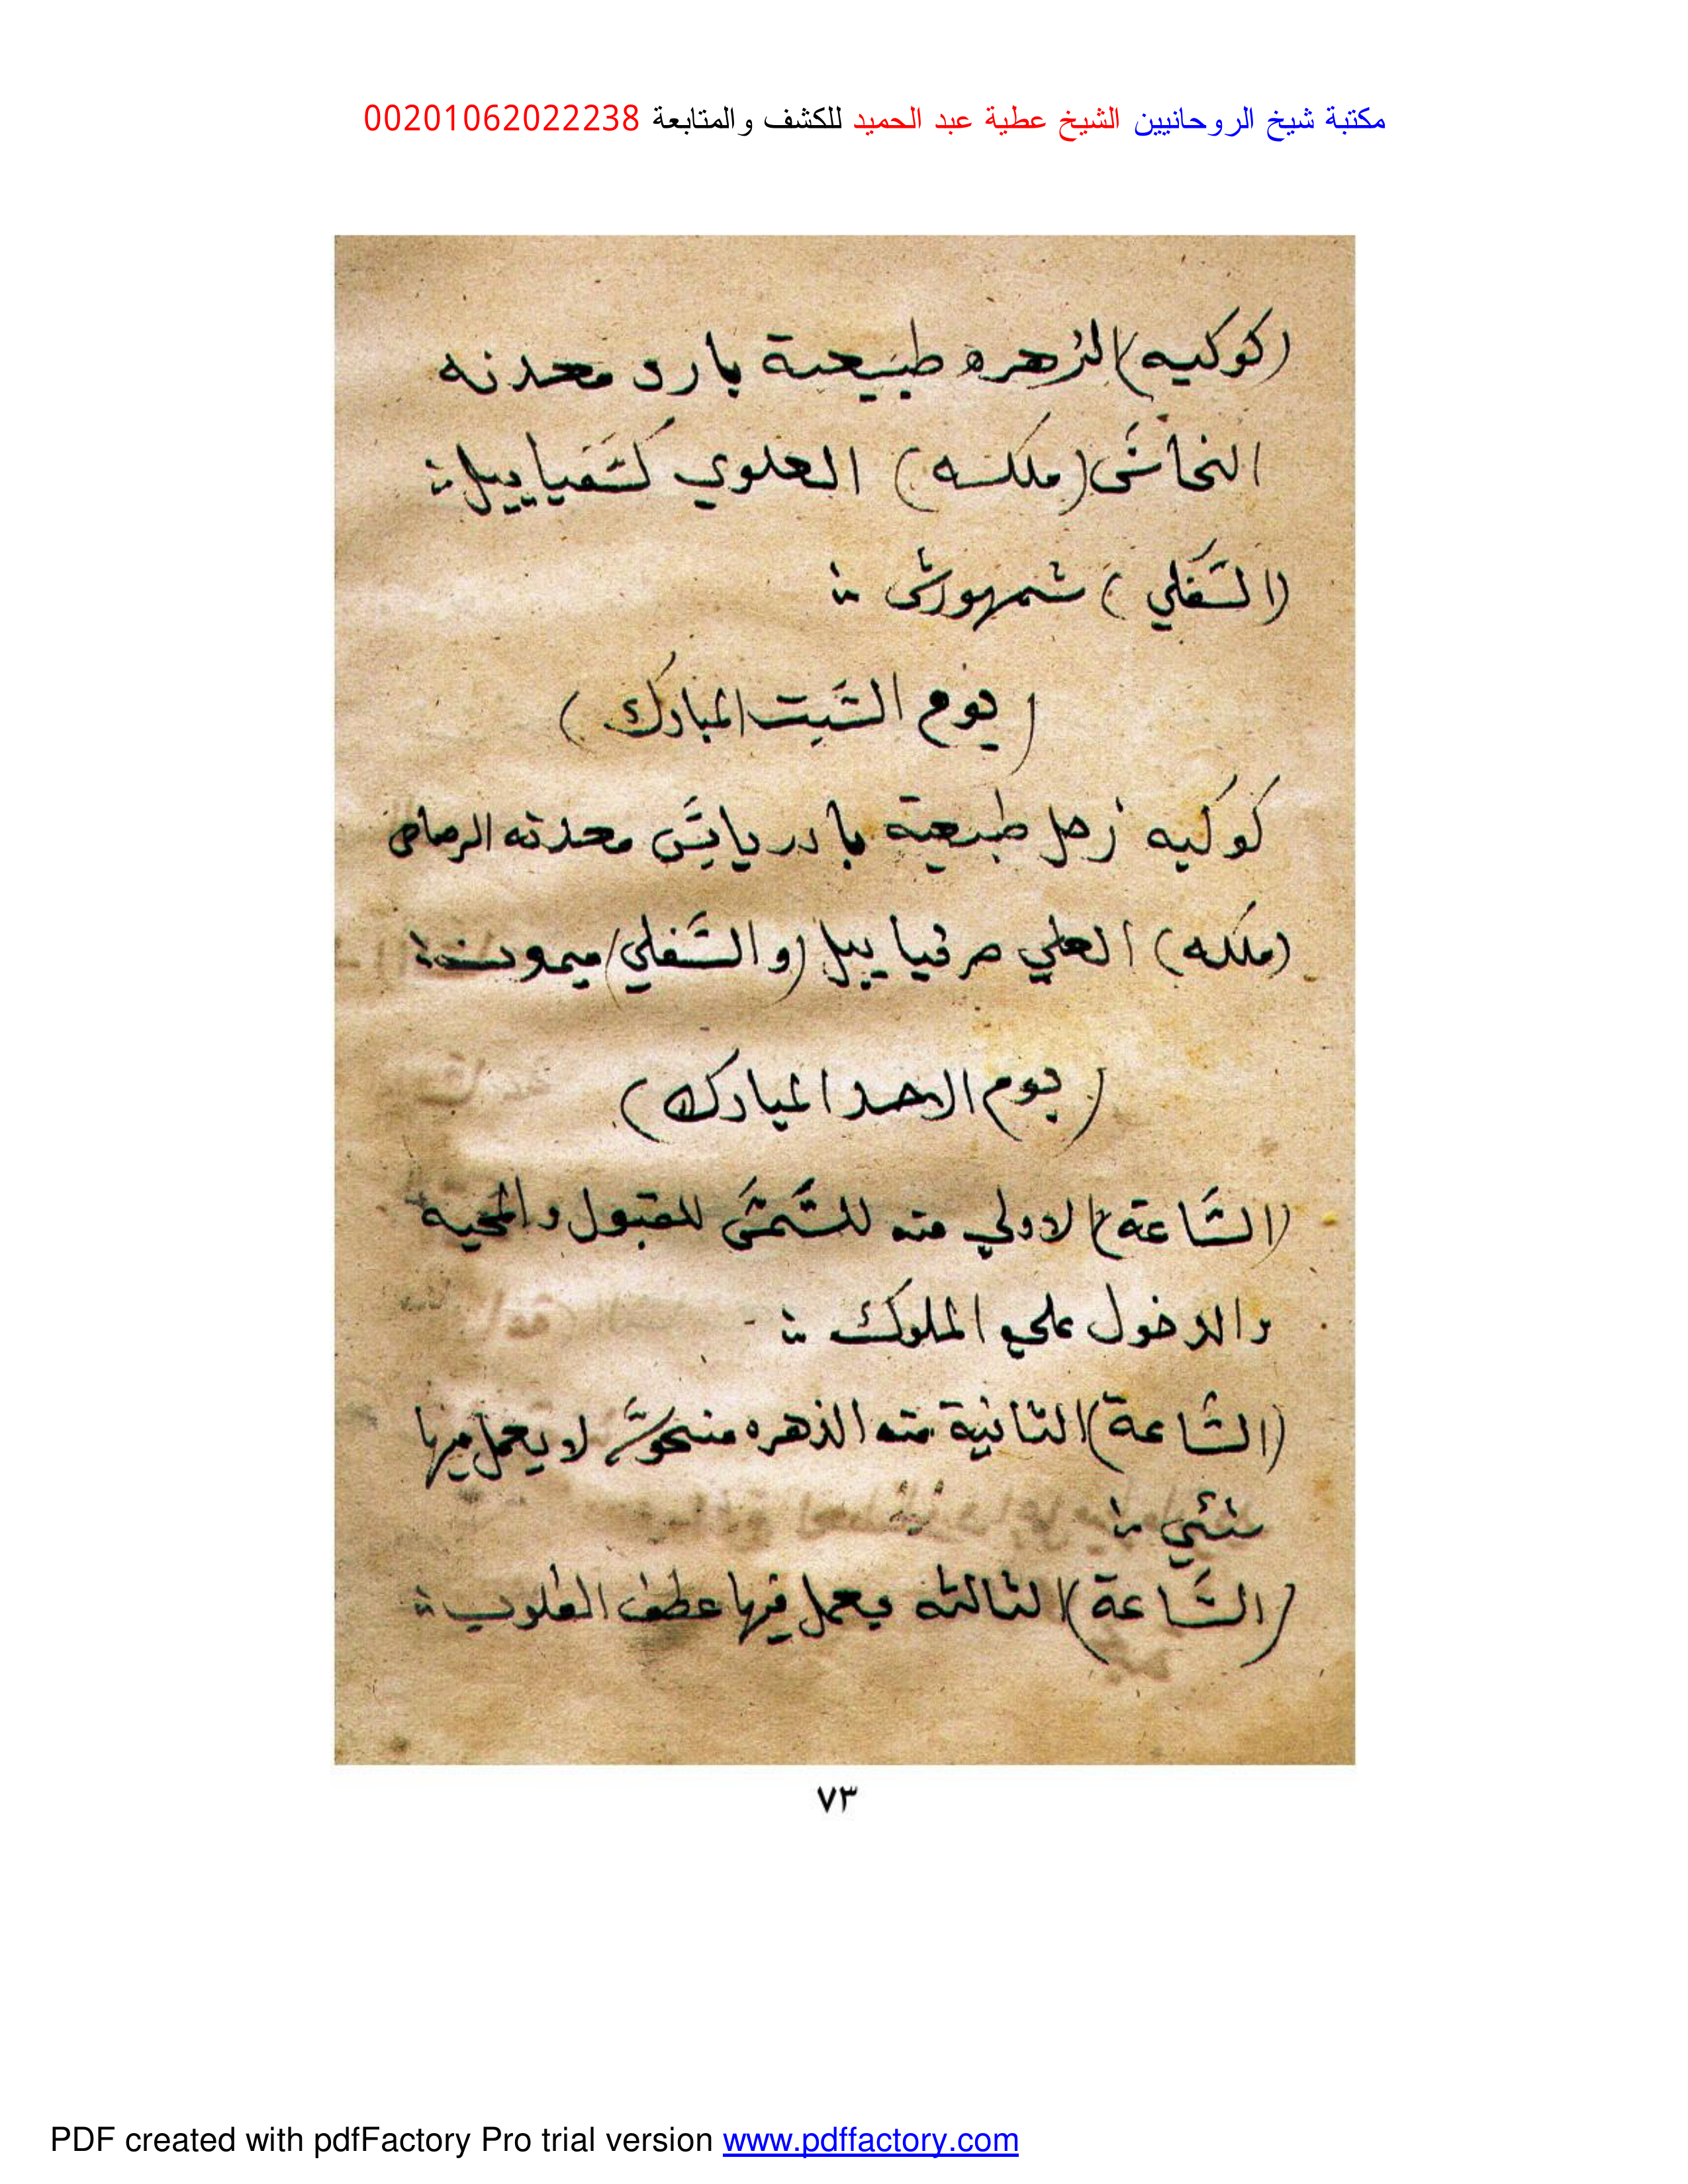 مكتبة شيخ الروحانيين الشيخ عطية عبد الحميد للكشف والمتابعة 00201062022238
(كوكبه) الزهره طبيعة بارد معدنه
النحاس (ملكه) العلوي كسفياييل
(السفلي) شمهورش
(يوم السبت المبارك)
كوكبه زحل طبيعية بادر يابس معدنه الرصاص
(ملكه) العلي صرفياييل (والسفلي) ميمون
(يوم الاحد المبارك)
(الساعة) الاولي منه للشمس للقبول والمحبه
والدخول علي الملوك
(الساعة) الثانية منه الذهره منحوس لا يعمل فيها
شئي
(الساعة) الثالثه يعمل فيها عطف القلوب
٧٣
PDF created with pdfFactory Pro trial version www.pdffactory.com